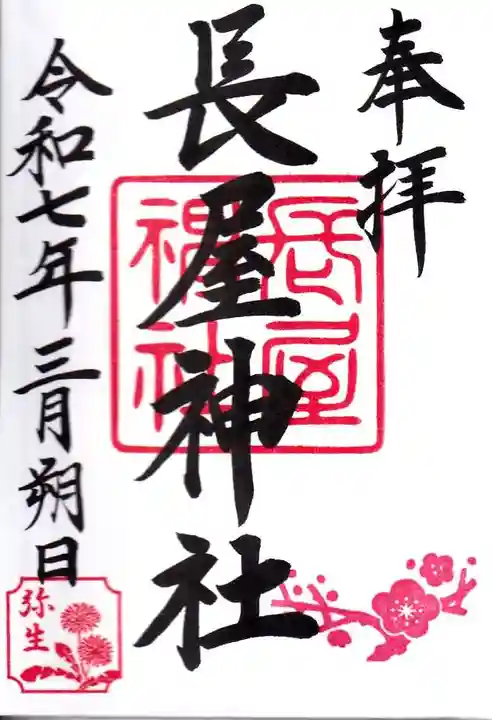 奉拝
長屋神社
長屋神社
令和七年三月朔日
弥生